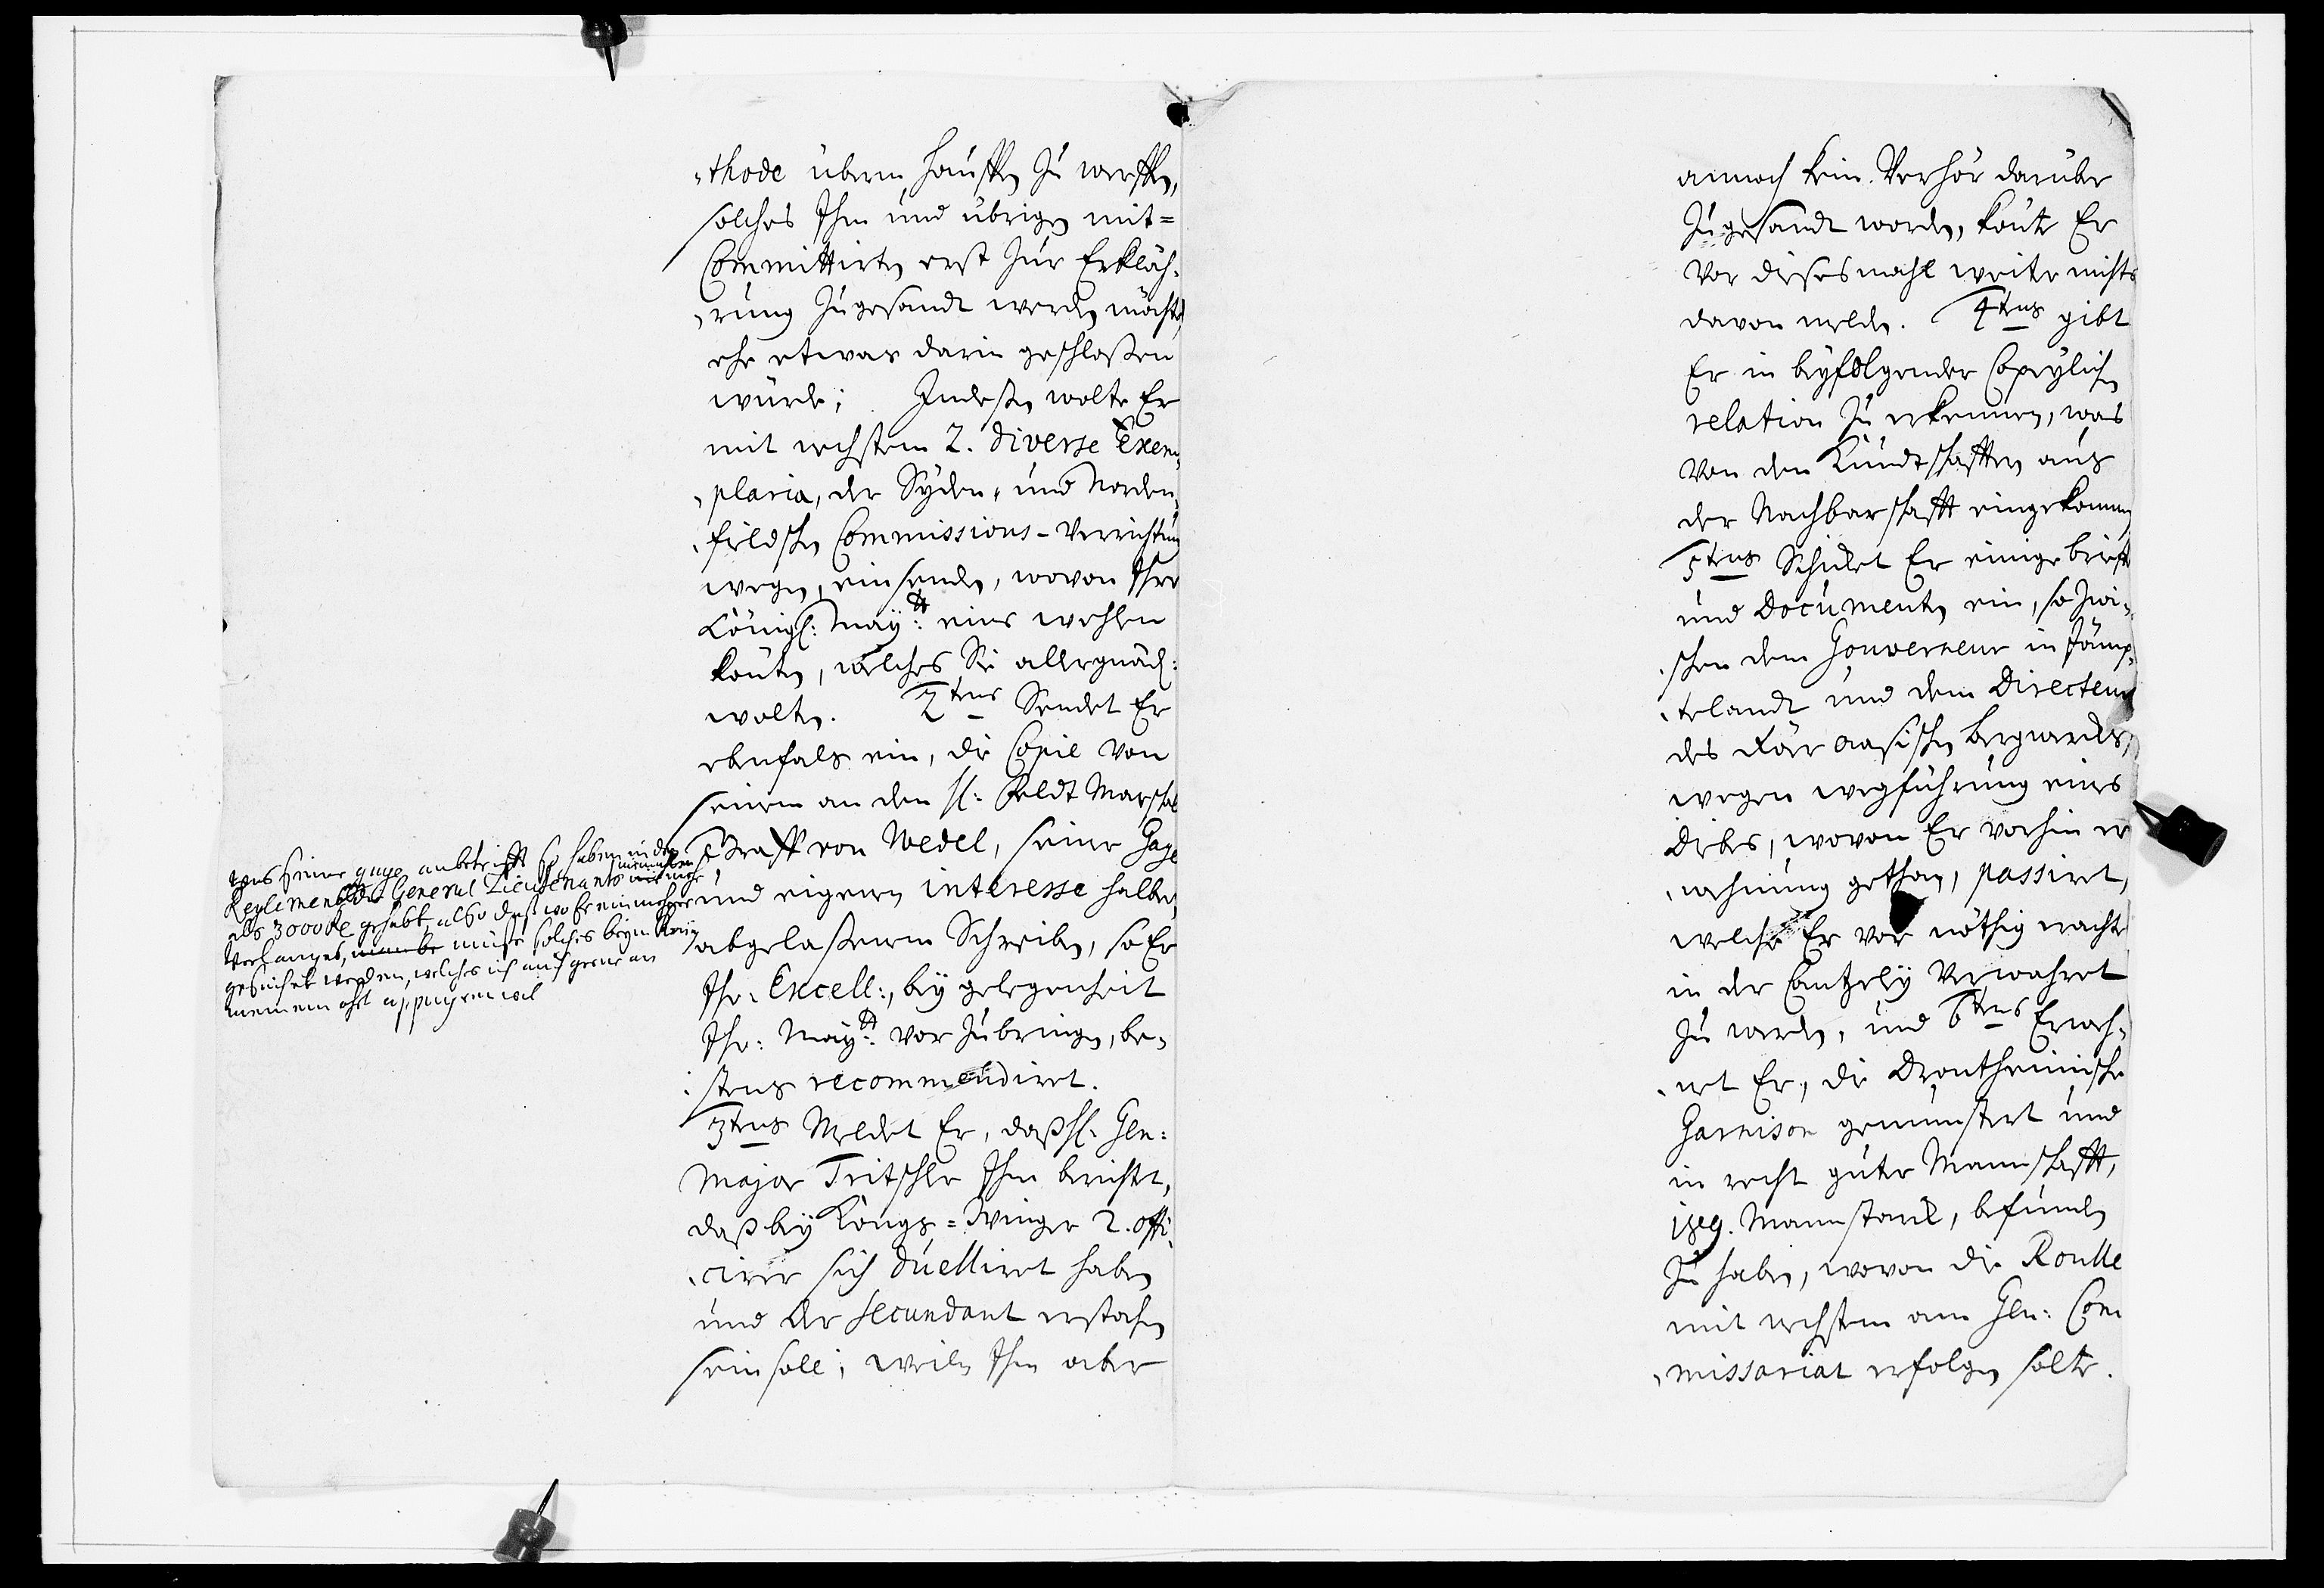 thode übern hauffen zu werffen,
solches Ihm und übrigen mit=
Committirten erst zur Erkläh=
rung zugesandt werden möchte,
ehe etwas darin geschloßen
würde; Indeßen wolte Er
mit nechstem 2. diverse Exem=
plaria, der Syden= und Norden=
fieldschen Commissions-Verrichtung
wegen, einsenden, wovon Ihre
Königl: Maytt: eins wehlen
könten, welches Sie allergnäd:
wolten. 2tens Sendet Er
ebenfals ein, die Copie von
seinem an den H: Feldt Marschal
Graff von Wedel, seiner Gage
und eigenen interesse halber,
abgelaßenem Schreiben, so Er
Ihr: Excell:, bey gelegenheit
Ihr: Maytt: vor zu bringen, be=
stens recommendiret.
3tens Meldet Er, daß H: Gen:
Major Tritschler Ihm berichtet,
daß bey Kongs=Winger 2. offi=
cirer sich duelliret haben
und der secundant erstochen
sein soll; weilen Ihm aber
was seiner gage anbetrifft so haben in den
Reglement die General Lieutenants niemahlen mehr
als 3000 Rl gehabt, also daß wo Er ein mehres
verlanget, müste solches beym König
gesuchet werden, welches ich auch gerne an
meinem ohrt appuyren wil
annoch kein Verhör darüber
zugesandt worden, könte Er
vor diesesmahl weiter nichts
davon melden. 4tens gibt
Er in beyfolgender Copeylichen
relation zu erkennen, was
von den Kundtschafften aus
der Nachbarschafft eingekommen
5tens Schicket Er einige brieffe
und Documenten ein, so zwi=
schen dem Gouverneur in Jämp=
telandt und dem Directeur
des Röraasischen bergwercks,
wegen wegführung eines
Diebes, wovon Er vorhin er
wehnung gethan, passiret,
welche Er vor nöthig achte
in der Cantzeley verwahret
zu werden, und 6tens Erweh=
net Er, die Drontheimische
Garnison gemunstert und
in recht guter Mannschafft,
Mann starck, befunden
zu haben, wovon die Roulle
mit nechstem am Gen: Com
missariat erfolgen solte.